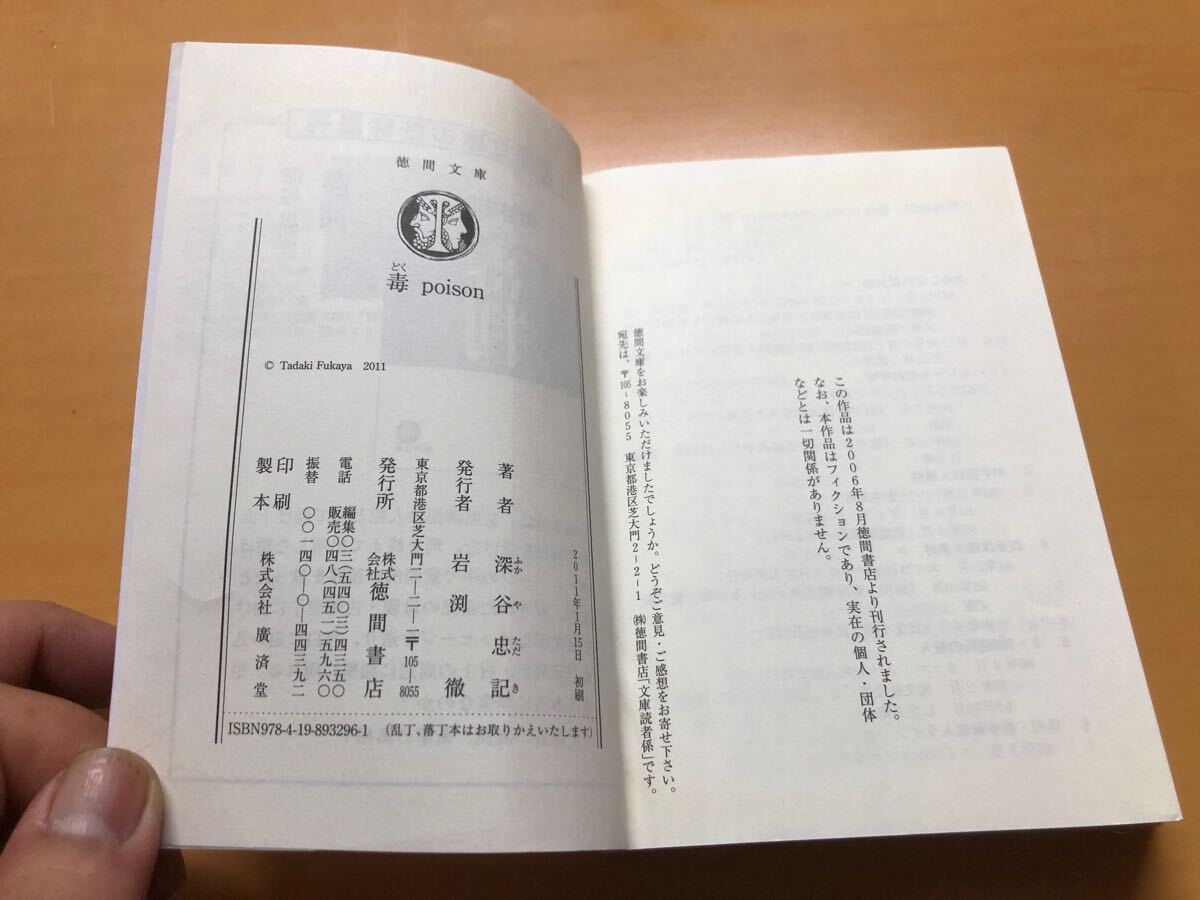 この作品は2006年8月徳間書店より刊行されました。
なお、本作品はフィクションであり、実在の個人・団体
などとは一切関係がありません。
徳間文庫をお楽しみいただけましたでしょうか。どうぞご意見・ご感想をお寄せ下さい。
宛先は、〒105-8055 東京都港区芝大門2-2-1 ㈱徳間書店「文庫読者係」です。
徳間文庫
どく
毒 poison
© Tadaki Fukaya 2011
2011年1月15日 初刷
著者 深谷忠記
ふか や ただ き
発行者 岩渕徹
東京都港区芝大門二-二-一〒105-8055
発行所 株式会社徳間書店
電話 編集〇三(五四〇三)四三五〇
販売〇四八(四五一)五九六〇
振替 〇〇一四〇-〇-四四三九二
印刷
製本 株式会社廣済堂
ISBN978-4-19-893296-1 (乱丁、落丁本はお取りかえいたします)